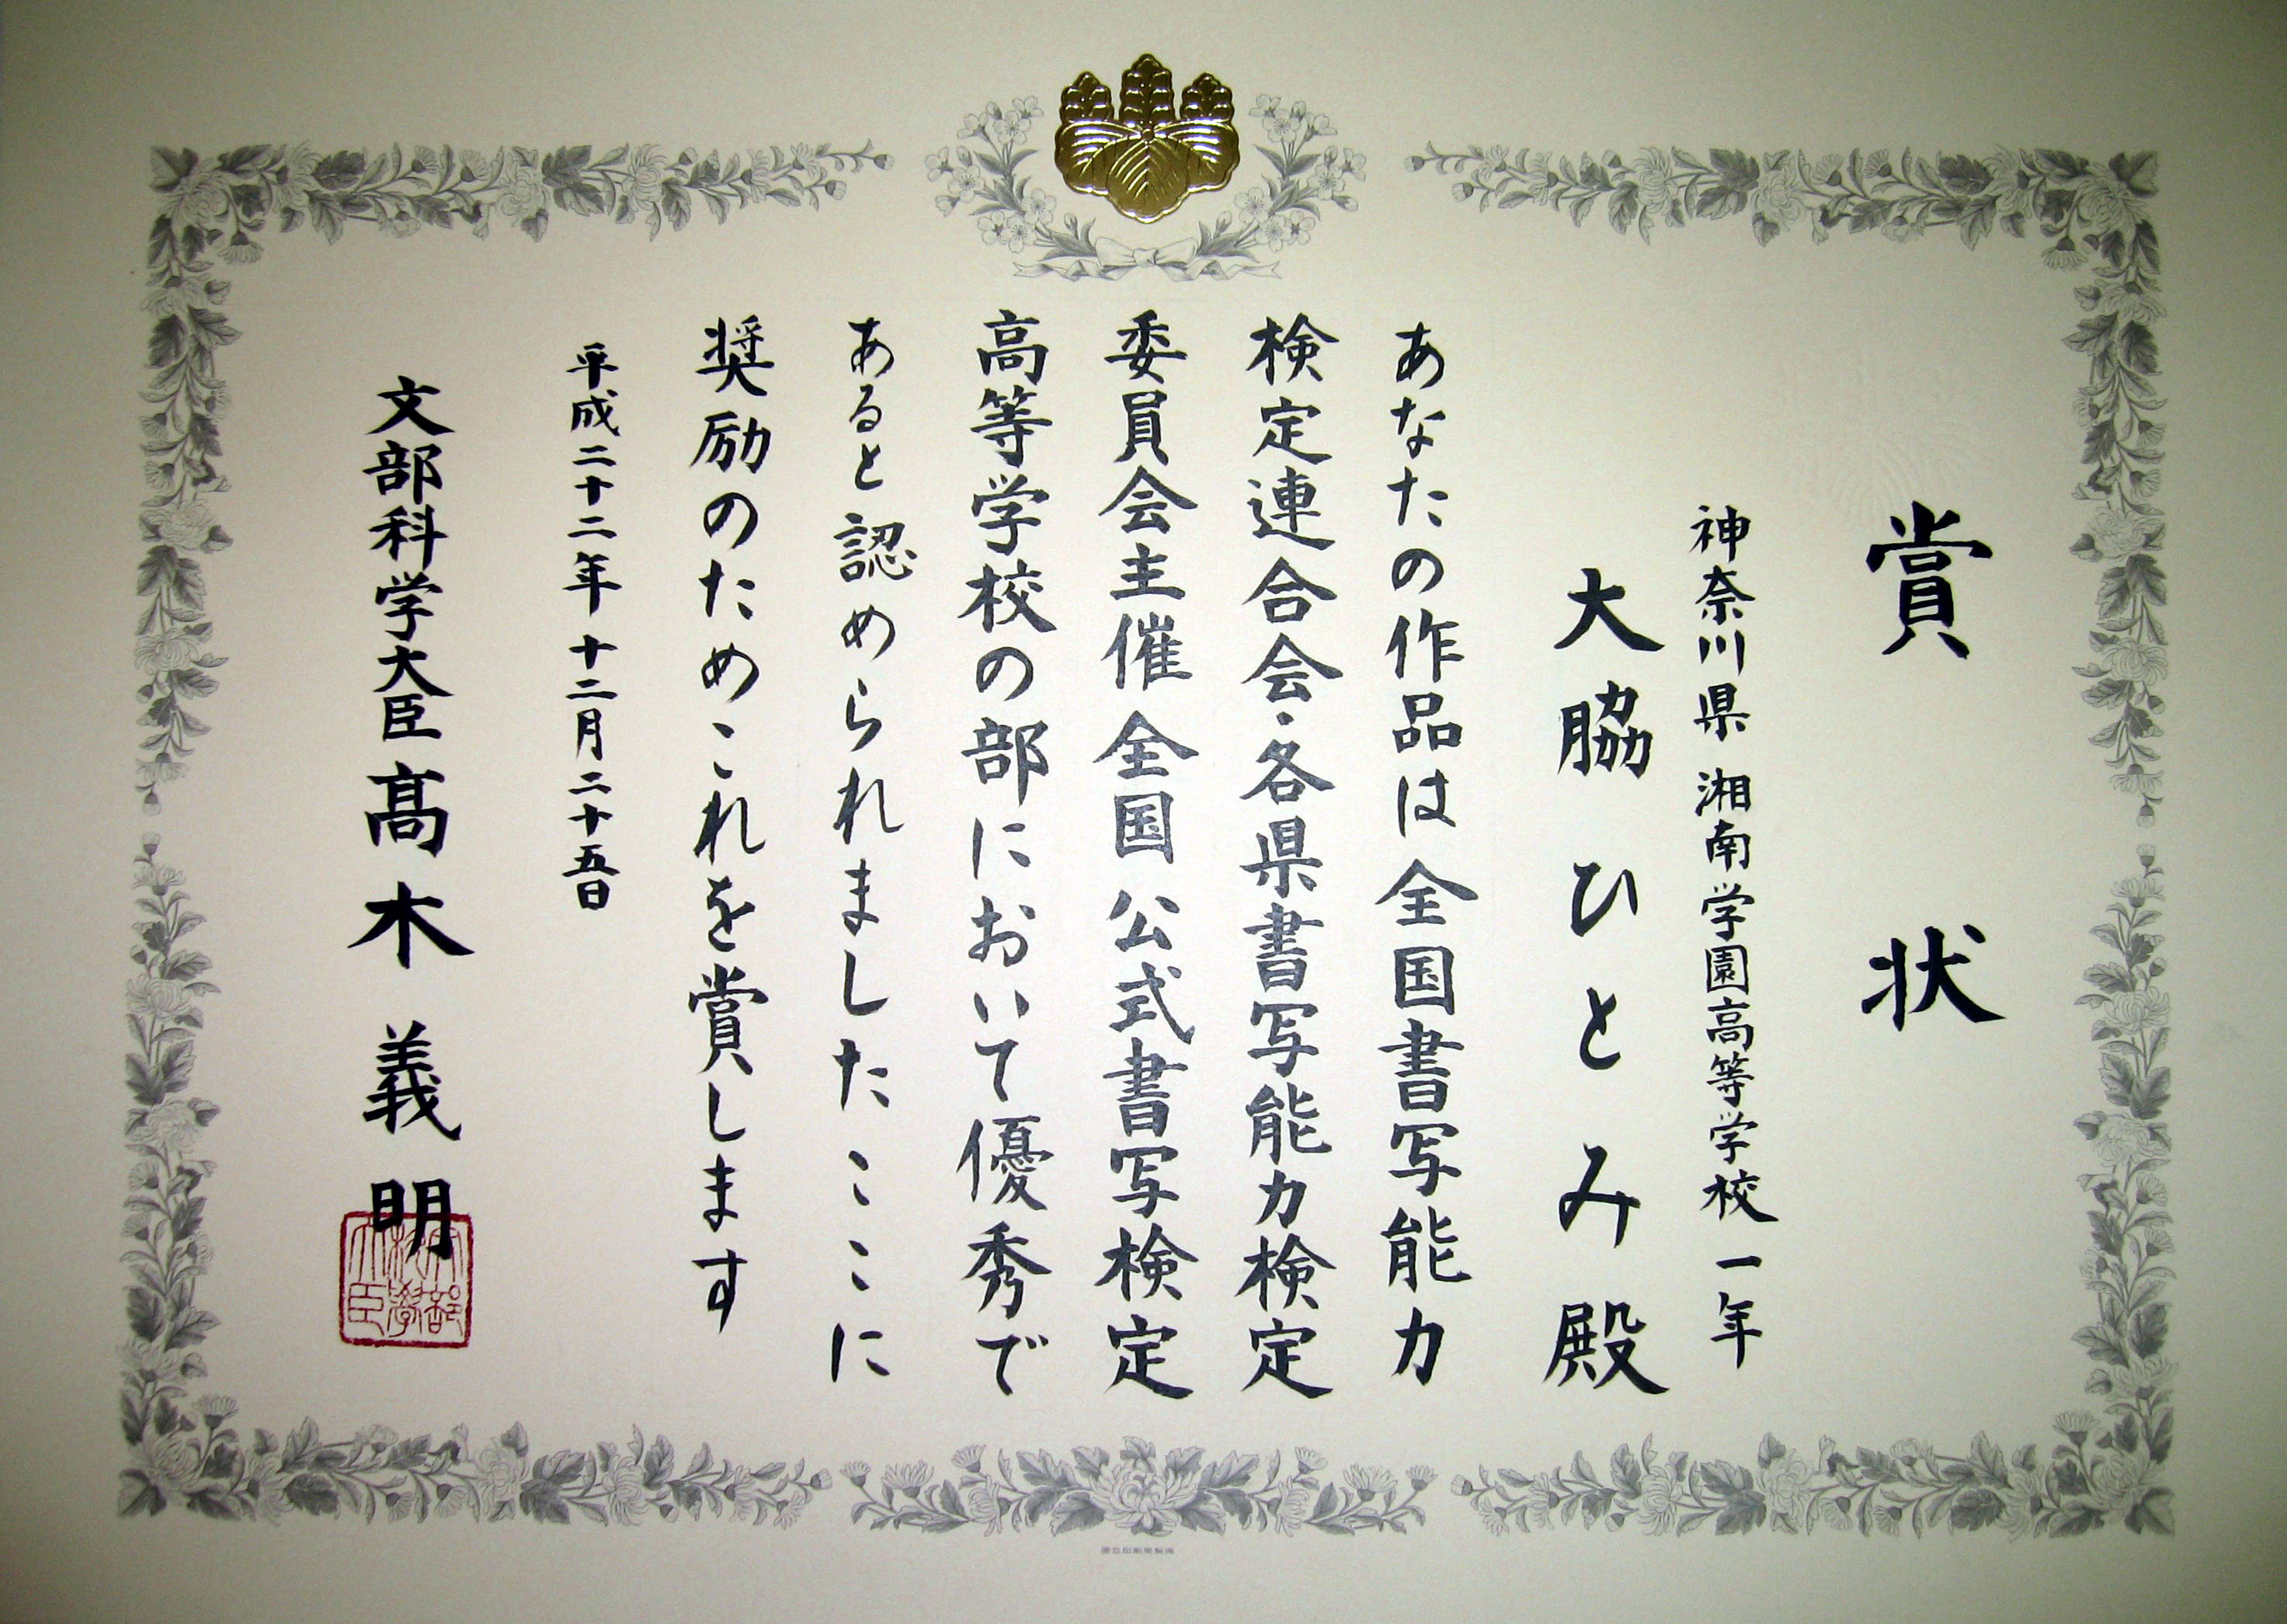 賞状
神奈川県 湘南学園高等学校 一年
大脇ひとみ殿
あなたの作品は全国書写能力
検定連合会・各県書写能力検定
委員会主催 全国公式書写検定
高等学校の部において優秀で
あると認められましたここに
奨励のためこれを賞します
平成二十二年十二月二十五日
文部科学大臣 髙木義明
文部科學大臣